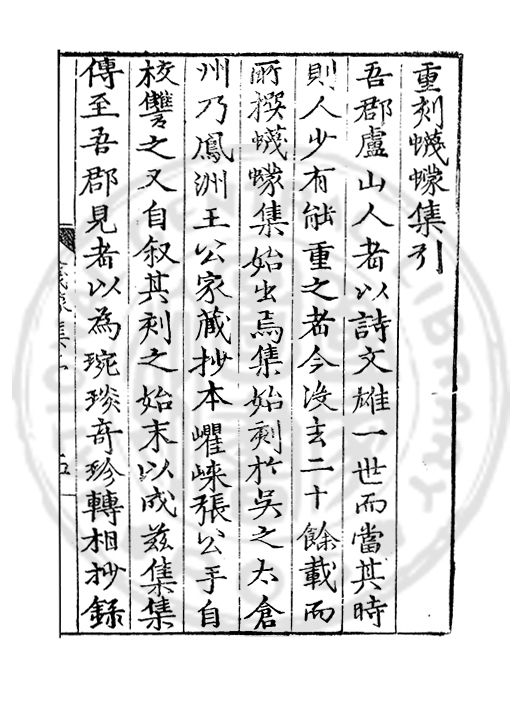 重刻蠛蠓集引
吾郡盧山人者以詩文雄一世而當其時
則人少有能重之者今沒玄二十餘載而
所撰蠛蠓集始出焉集始刻於吳之太倉
州乃鳳洲王公家藏抄本嶇崍張公手自
校讐之又自叙其刻之始末以成茲集集
傳至吾郡見者以為琬琰奇珍轉相抄錄